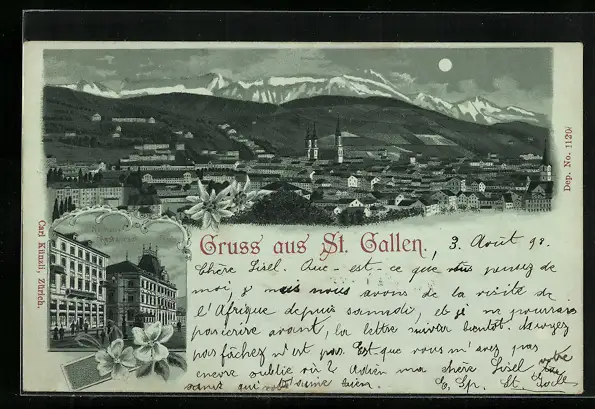 Gruss aus St. Gallen,
3. Août 98.
Chère Lisel. Que - est - ce que vous pensez de
moi, je mais nous avons de la visite de
l'Afrique depuis samedi, et je ne pourrais
pas écrire avant, la lettre suiver bientôt.
pas fâchez n'est pas. Est que vous m'avez pas
encore oublié où? Adieu ma chère Lisel votre
qui vous aime bien.
Dep. No. 1120
Carl Künzli, Zürich.